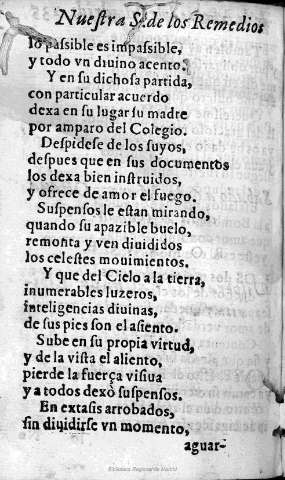 Nueſtra S. de los Remedios
lo paſsible es impaſsible,
y todo vn diuino acento.
Y en ſu dichoſa partida,
con particular acuerdo
dexa en ſu lugar ſu madre
por amparo del Colegio.
Deſpideſe de los ſuyos,
deſpues que en ſus documentos
los dexa bien inſtruidos,
y ofrece de amor el fuego.
Suſpenſos le eſtan mirando,
quando ſu apazible buelo,
remonta y ven diuididos
los celeſtes mouimientos.
Y que del Cielo a la tierra,
inumerables luzeros,
inteligencias diuinas,
de ſus pies ſon el aſiento.
Sube en ſu propia virtud,
y de la viſta el aliento,
pierde la fuerça viſiua
y a todos dexò ſuſpenſos.
En extaſis arrobados,
ſin diuidirſe vn momento,
aguar-
Biblioteca Regional de Madrid